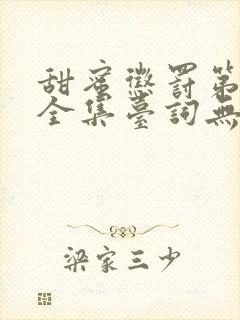 甜蜜懲罰第
全集臺詞無
梁家三少